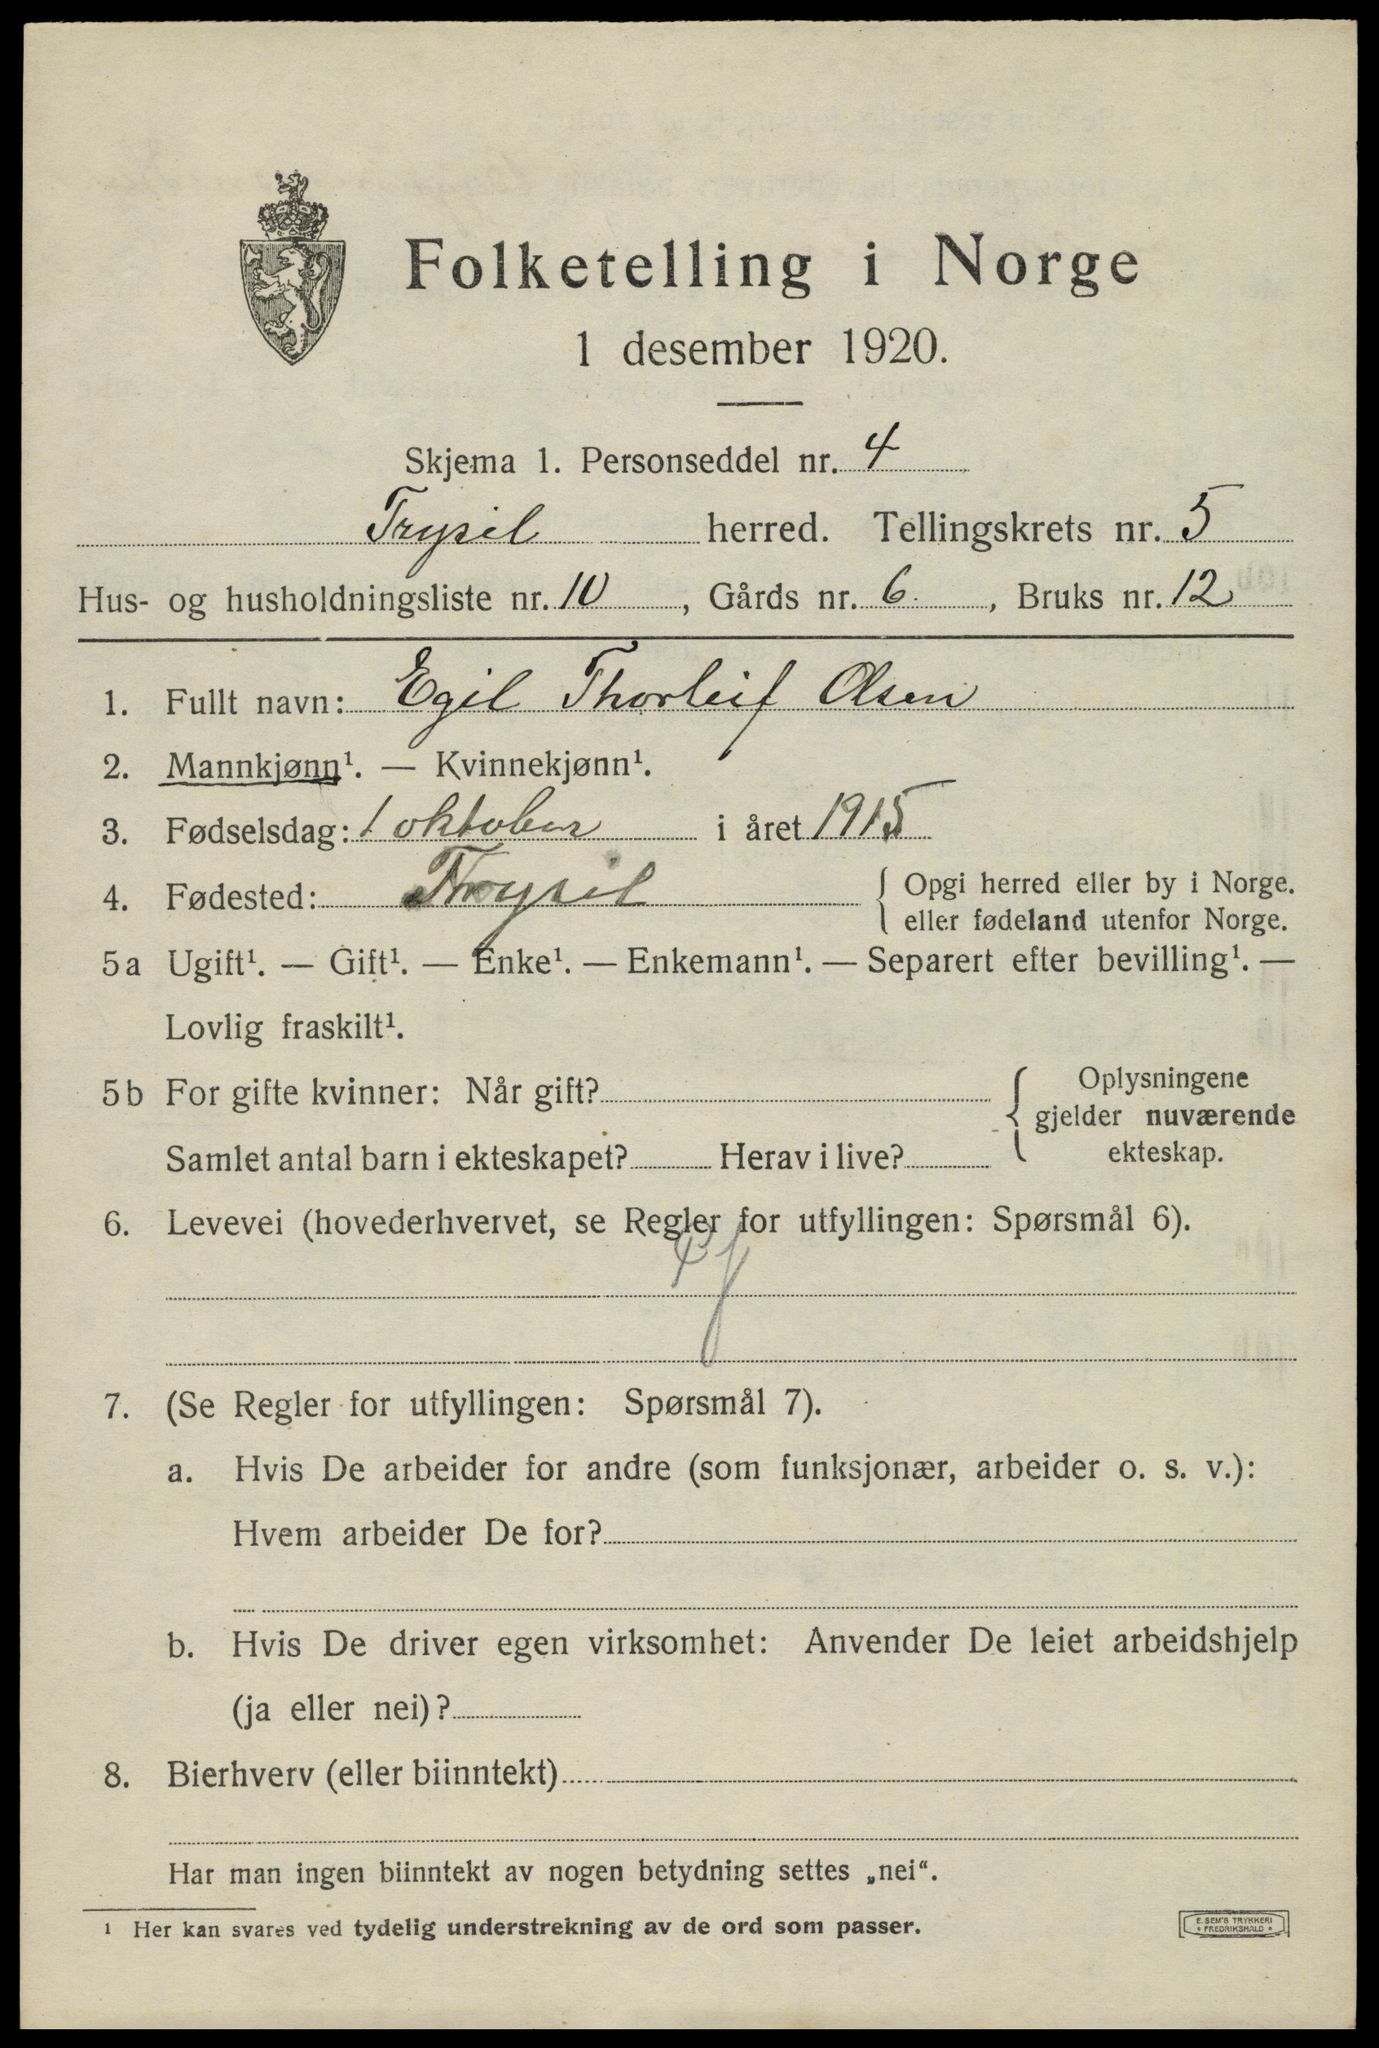 Folketelling i Norge
1 desember 1920.
Skjema 1. Personseddel nr. 4
Trysil herred. Tellingskrets nr. 5
Hus- og husholdningsliste nr. 10, Gårds nr. 6, Bruks nr. 12
1. Fullt navn: Egil Thorleif Olsen
2. Mannkjønn¹. — Kvinnekjønn¹.
3. Fødselsdag: 1 oktober i året 1915
4. Fødested: Trysil { Opgi herred eller by i Norge.
eller fødeland utenfor Norge.
5a Ugift¹. — Gift¹. — Enke¹. — Enkemann¹. — Separert efter bevilling¹. —
Lovlig fraskilt¹.
5b For gifte kvinner: Når gift? { Oplysningene
gjelder nuværende
Samlet antal barn i ekteskapet? Herav i live? ekteskap.
6. Levevei (hovederhvervet, se Regler for utfyllingen: Spørsmål 6).
7. (Se Regler for utfyllingen: Spørsmål 7).
a. Hvis De arbeider for andre (som funksjonær, arbeider o. s. v.):
Hvem arbeider De for?
b. Hvis De driver egen virksomhet: Anvender De leiet arbeidshjelp
(ja eller nei)?
8. Bierhverv (eller biinntekt)
Har man ingen biinntekt av nogen betydning settes „nei“.
¹ Her kan svares ved tydelig understrekning av de ord som passer.
E. SEM'S TRYKKERI
* FREDRIKSHALD *